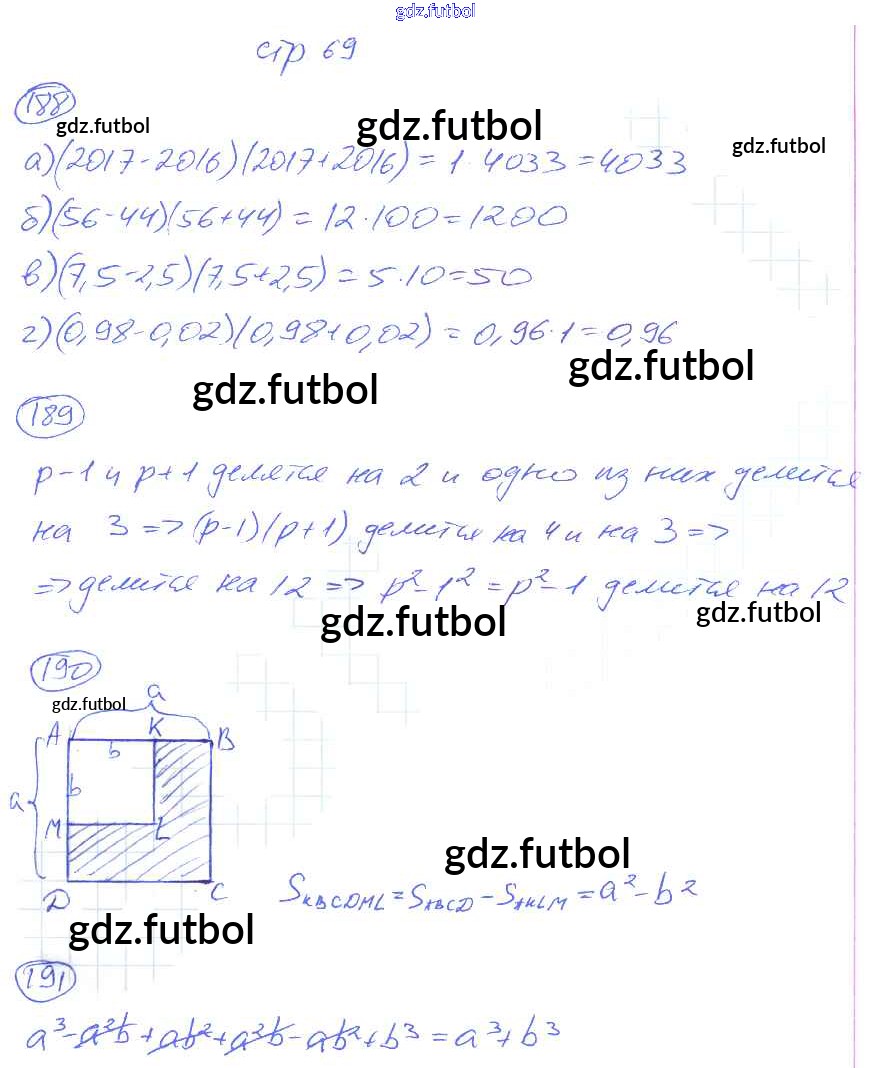 gdz.futbol
стр 69
188
gdz.futbol
gdz.futbol
gdz.futbol
а)(2017-2016)(2017+2016) = 1·4033 = 4033
б)(56-44)(56+44) = 12·100 = 1200
в)(7,5-2,5)(7,5+2,5) = 5·10 = 50
г)(0,98-0,02)(0,98+0,02) = 0,96·1 = 0,96
gdz.futbol
gdz.futbol
189
p-1 и p+1 делятся на 2 и одно из них делится
на 3 => (p-1)(p+1) делится на 4 и на 3 =>
=> делится на 12 => p²-1² = p²-1 делится на 12
gdz.futbol
gdz.futbol
190
gdz.futbol
a
A K B
b
a b
M L
D C
gdz.futbol
S KBCDML = S ABCD - S AKLM = a² - b²
gdz.futbol
191
a³ - a²b + ab² + a²b - ab² + b³ = a³ + b³